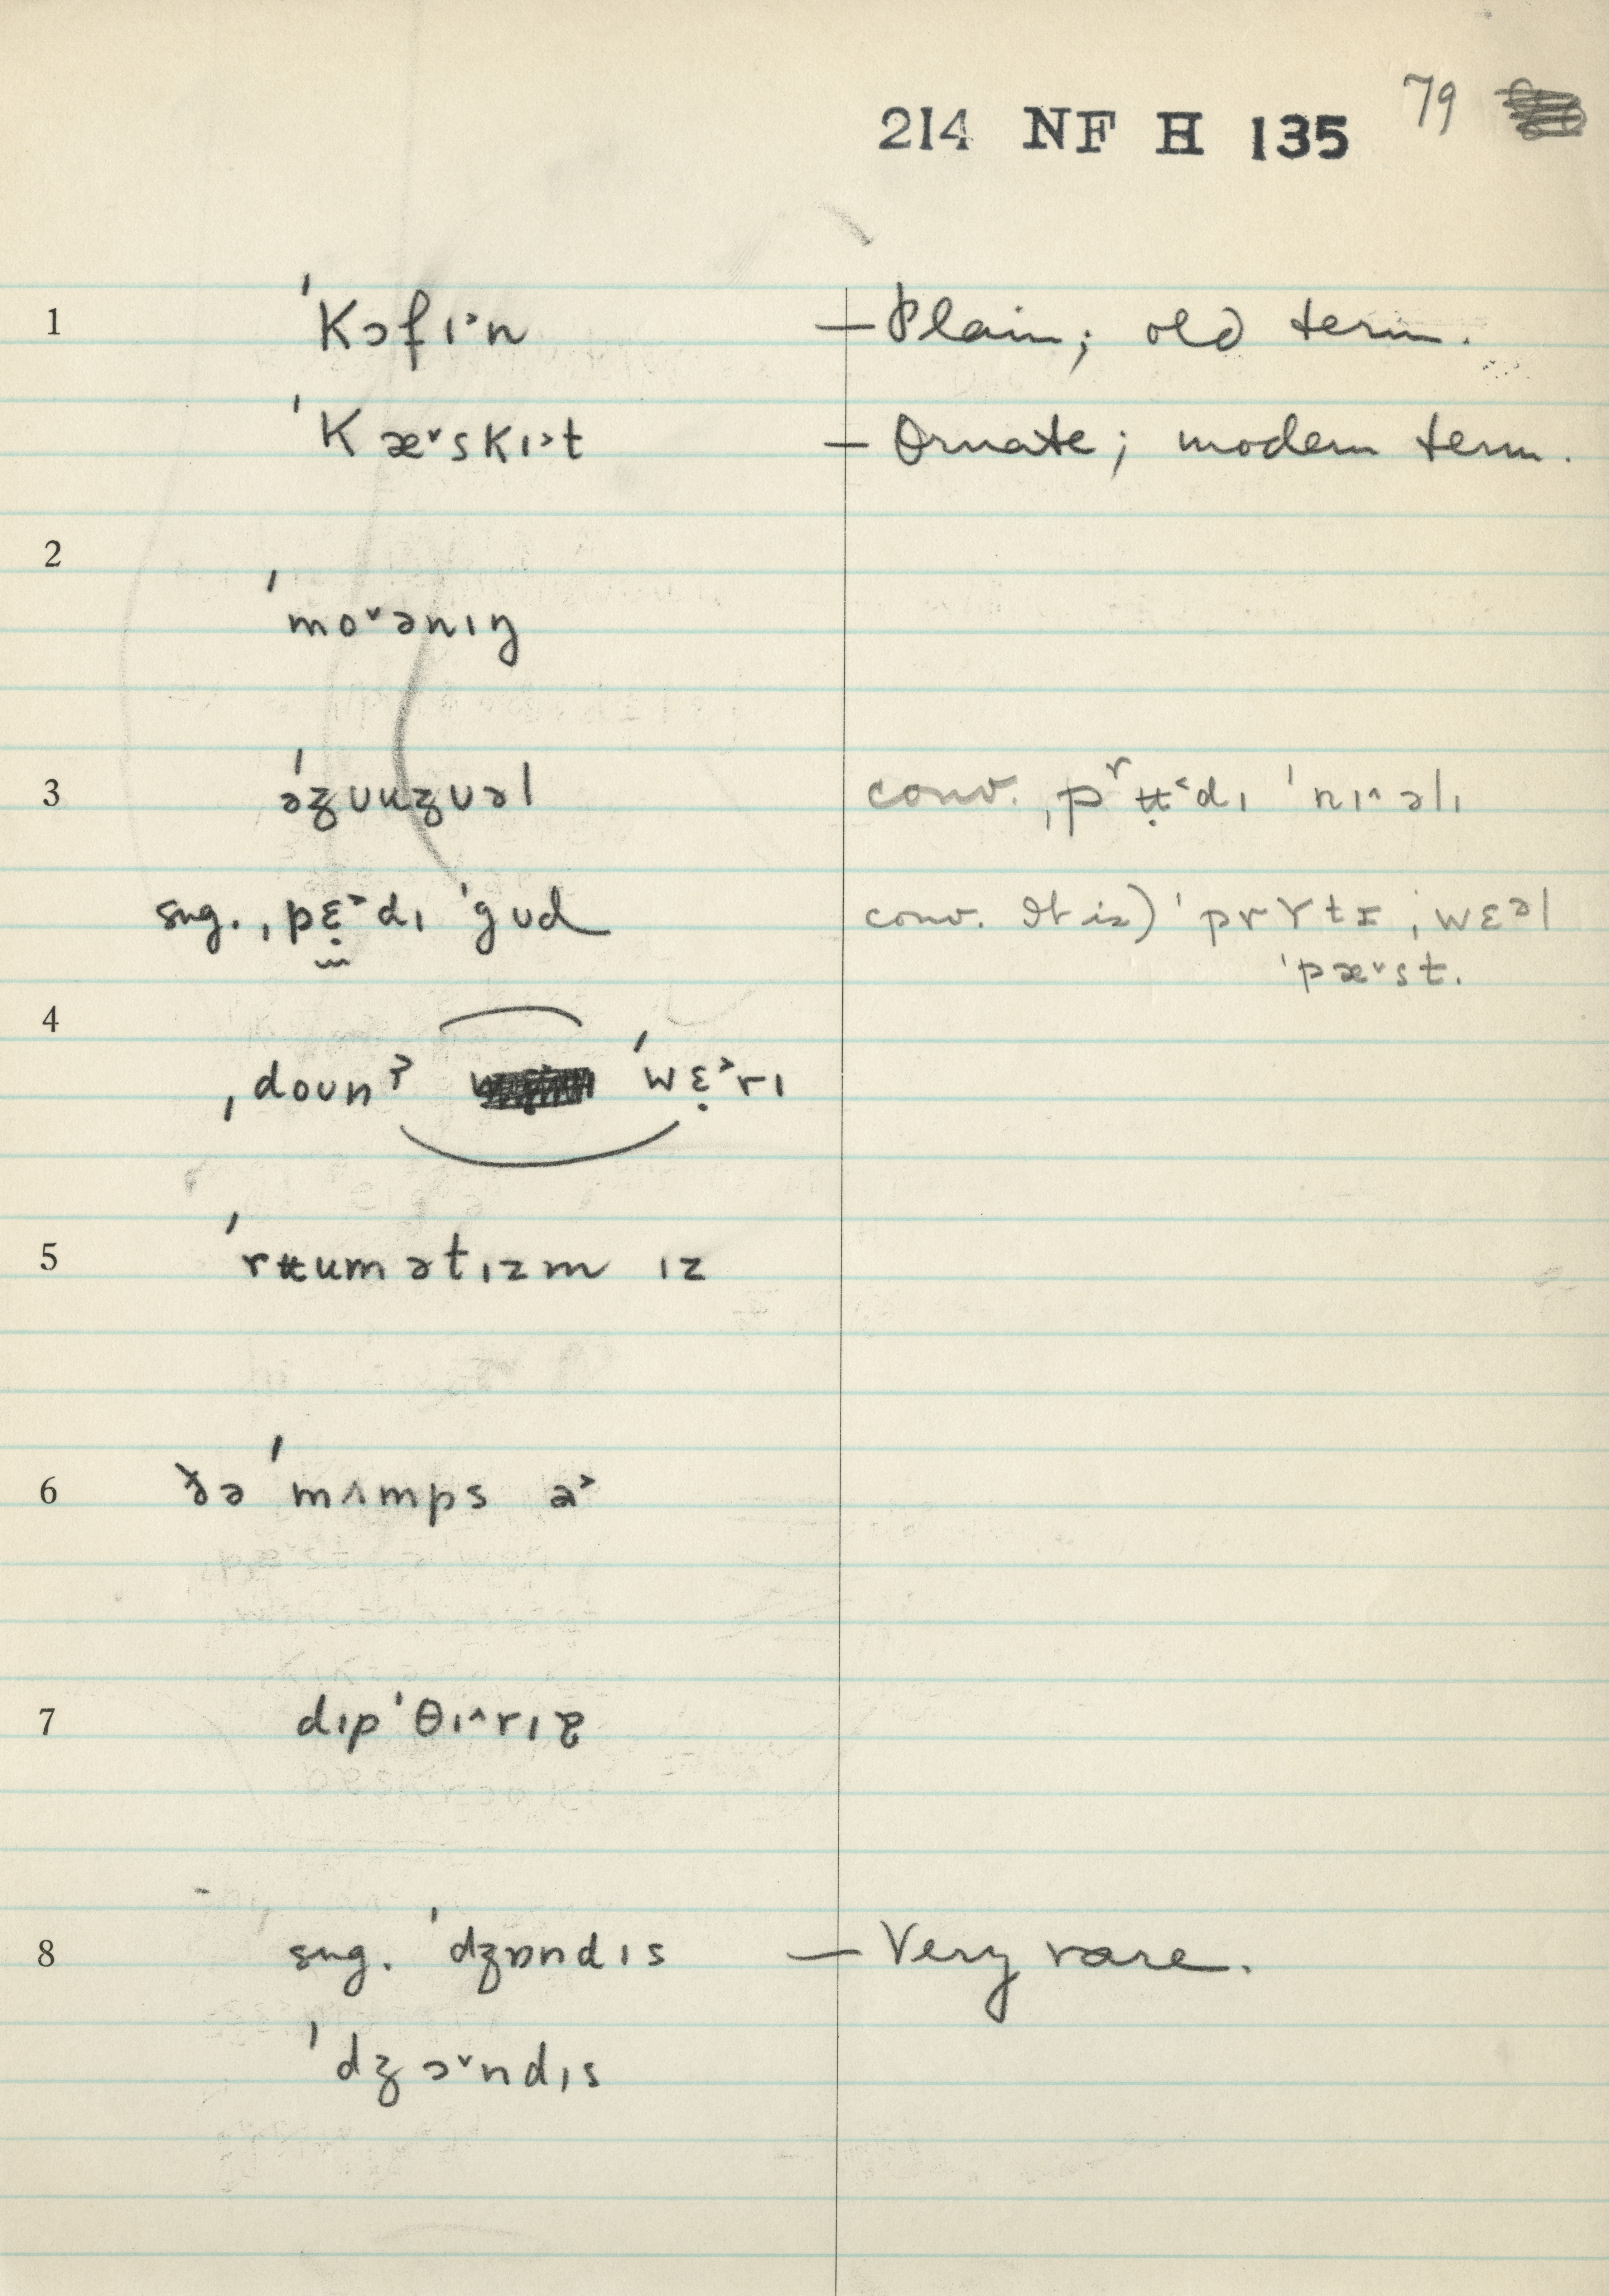 214 NF H 135 79
1 ˈkɔfɪ˃n — Plain; old term.
ˈkæ˅skɪ˃t — Ornate; modern term.
2
ˈmo˅ənɪŋ
3 əʒʊuʒʊəl conv. ˌpʳʉ̣˂dɪ ˈnɪ˄əlɪ
sug. ˌpɛ̣˃dɪ ˈgʊd conv. It is) ˈprɤtɪ ˌwɛəl
ˈpæ˅st.
4
ˌdoʊnˀ ˈwɛ̣˃rɪ
5 ˈrʉumətɪzm ɪz
6 ðə ˈmʌmps ə˃
7 dɪpˈθɪ˄rɪə
8 sug. ˈdʒɒndɪs — Very rare.
ˈdʒɔ˅ndɪs